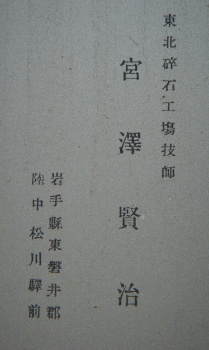 東北碎石工塲技師
宮澤賢治
岩手縣東磐井郡
陸中松川驛前